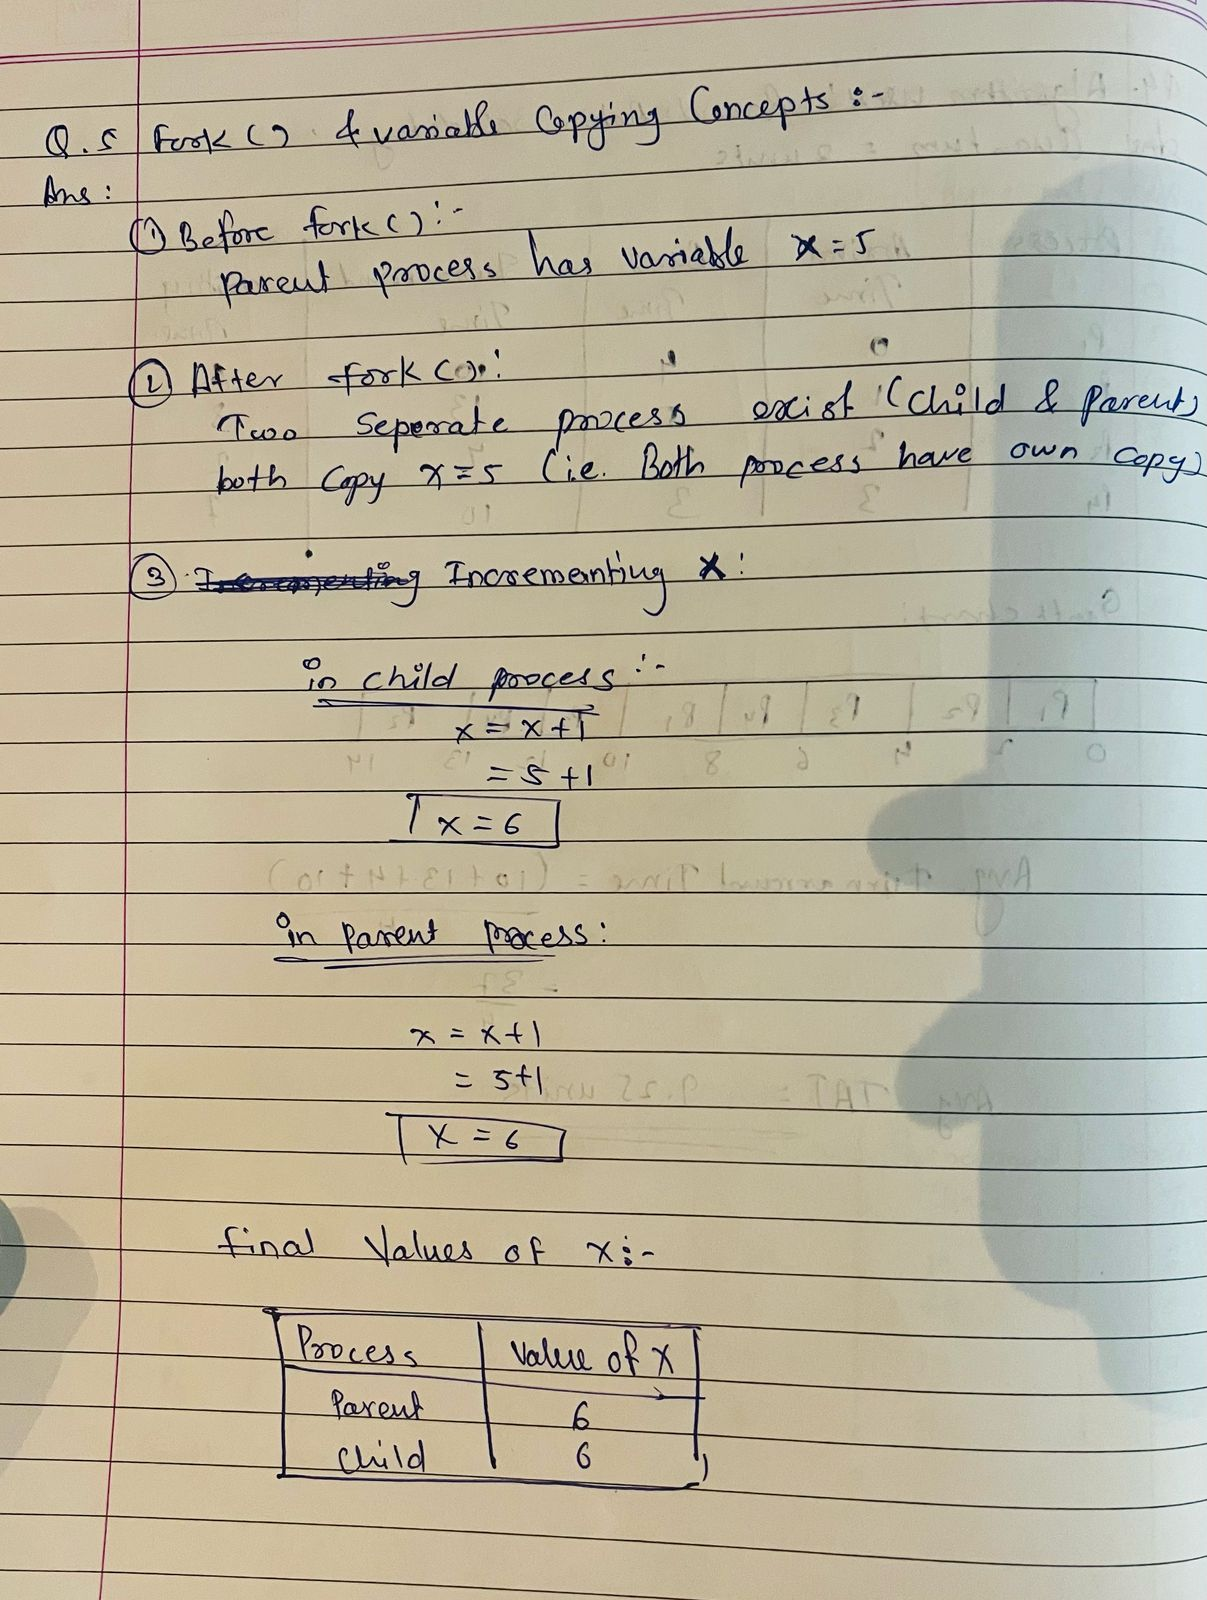 Q.5 Fork () & variable Copying Concepts :-
Ans :
① Before fork () :-
Parent process has variable x = 5
② After fork () :
Two Seperate process exist (Child & Parent)
both Copy x = 5 (i.e. Both process have own copy)
③ Incrementing Incremanting x :
in child process :-
x = x + 1
= 5 + 1
x = 6
in Parent process :
x = x + 1
= 5 + 1
x = 6
final Values of x :-
Process Value of X
Parent 6
Child 6